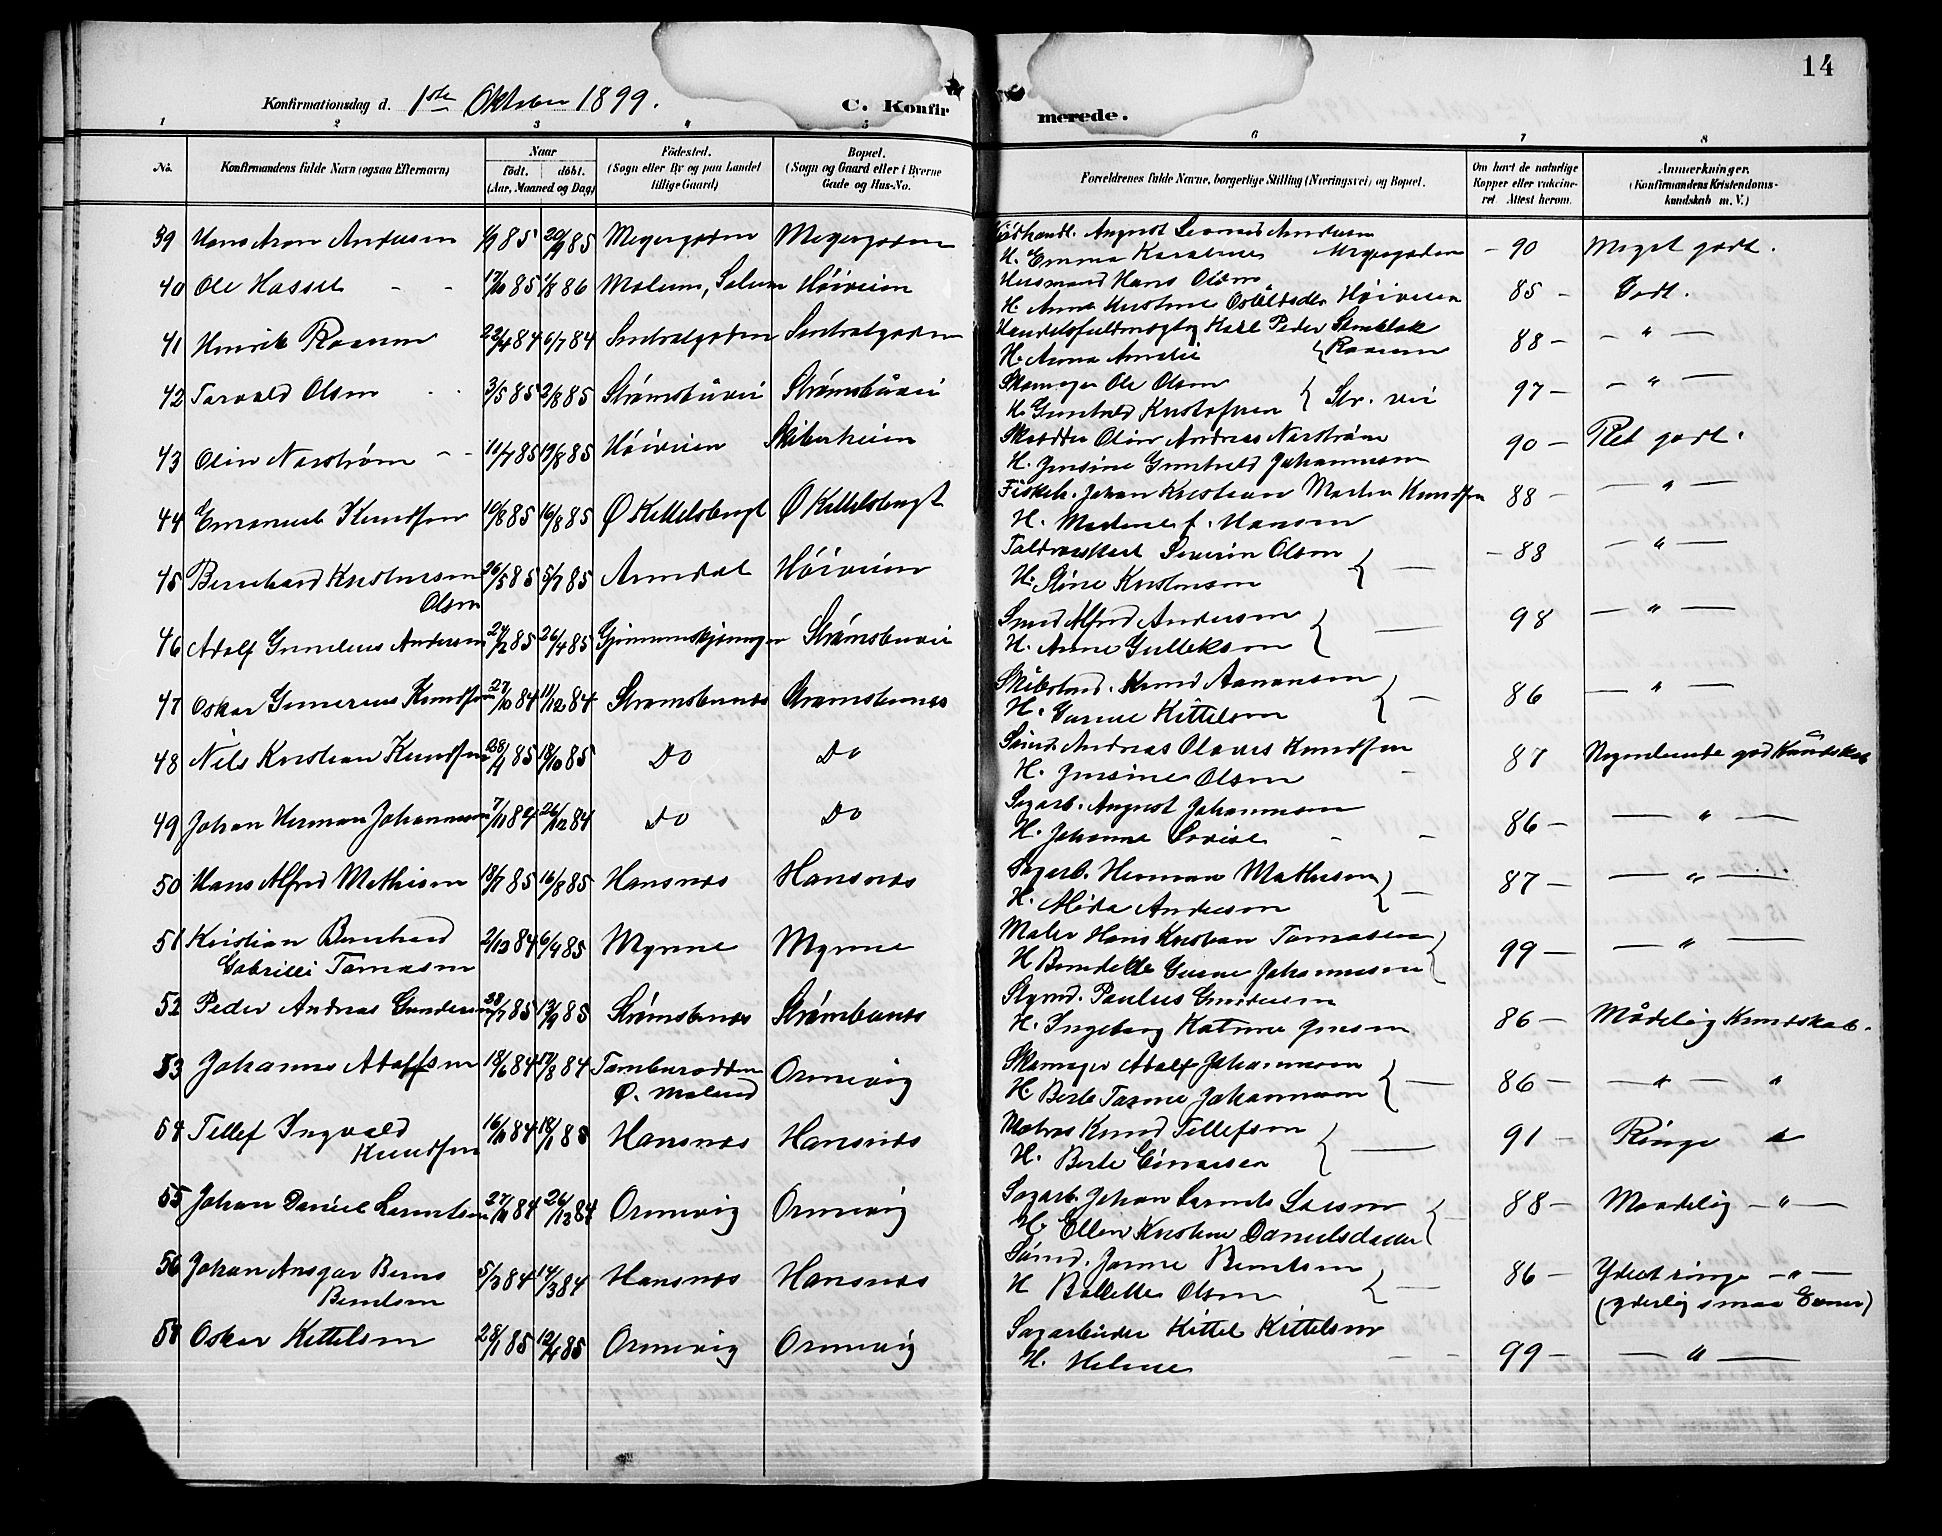 14
Konfirmationsdag d. 1ste Oktober 1899.
C. Konfirmerede.
1 2 3 4 5 6 7 8
No. Konfirmandens fulde Navn (ogsaa Efternavn) Naar født. døbt. (Aar, Maaned og Dag) Födested. (Sogn eller By og paa Landet tillige Gaard) Bopæl. (Sogn og Gaard eller i Byerne Gade og Hus-No. Forældrenes fulde Navne, borgerlige Stilling (Næringsvei) og Bopæl. Om havt de naturlige Kopper eller vakcineret. Attest herom. Anmærkninger. (Konfirmandens Kristendomskundskab m. V.)
39 Hans Aron Andersen 85 20/9 85 Meyergaden Meyergaden August Leonard Andersen
H. Emma Karoline Meyergaden - 90 Meget godt.
40 Ole Hassel - - 17/10 85 86 Høiveien Husmand Hans Olsen
H. Anna Kirstine Høiveien 85 - Godt.
41 Henrik Raaum 22/4 84 6/7 84 Sentralgaden Sentralgaden Handelsfuldmægtig Karl Peder
H. Anna Amalie Raaum 88 - - " -
42 Torvald Olsen 3/5 85 2/8 85 Strømsbuvei Strømsbuvei Skomager Ole Olsen
H. Gunhild Kristofsen Str. vei 97 - - " -
43 Olin Narstrøm - - 11/7 85 19/8 85 Høiveien Skibsheien Skrædder Olin Andreas Narstrøm
H. Jensine Gunhild Johannesen 90 - Ret godt.
44 Emanuel Knudsen 10/8 85 16/8 85 Ø Kittelsbugt Ø Kittelsbugt Fiskeh. Johan Kristian Martin Knudsen
H. f. Hansen 88 - - " -
45 Bernhard Kristensen
Olsen 26/5 85 5/7 85 Arendal Høiveien Severin Olsen
H. Stine Kristensen - - 88 - " -
46 Adolf Gunelius Andersen 24/2 85 26/4 85 Strømsbuvei Smed Alfred Andersen
H. Anne Gulleksen - 98 - " -
47 Oskar Gunerius Knudsen 27/10 84 11/12 84 Strømsbunæs Strømsbunæs Knud Aanonsen
H. Gurine Kittelsen - 86 - " -
48 Nils Kristian Knudsen 85 18/10 85 Do Do Sømd. Andreas Olaves Knudsen
H. Jensine Olsen - 87 Nogenlunde god Kundskab
49 Johan Herman Johannesen 7/11 84 26/12 84 Do Do Sagarb. August Johannesen
H. Johanne Lovise - - 86 - - " -
50 Hans Alfred Mathisen 18/7 85 16/8 85 Hansnæs Hansnæs Sagarb. Herman Mathisen
H. Alida Andersen - 87 - - " -
51 Kristian Bernhard
Gabrielli Tomasen 2/12 84 6/4 85 Myrene Myrene Maler Hans Kristian Tomasen
H Berndette Gurine Johannesen 99 - - " -
52 Peder Andreas Gundersen 28/7 85 13/9 85 Strømsbunæs Strømbunæs Styrmd. Paulus Gundersen
H. Ingeborg Katrine Jensen 86 - Mådelig Kundskab.
53 Johannes Adolfsen 18/6 84 17/8 84 Tamburodden
Ø. Moland Ormevig Skomager Adolf Johannesen
H. Berte Tomine Johannesen - 86 - - " "
54 Tellef Ingvald
Knudsen 16/10 84 18/1 85 Hansnæs Hansnæs Matros Knud Tellefsen
H. Berte Einarsen - 91 - Ringe "
55 Johan Daniel Larentsen 27/10 84 26/12 84 Ormevig Ormevig Sagarb. Johan Larents Larsen
H. Ellen Kristine Danielsdatter - 88 - Maadelig - " -
56 Johan Ansgar Berns
Berntsen 5/3 84 14/3 84 Hansnæs Hansnæs Sømd. Berntsen
H Bolette Olsen - 86 - Yderst ringe - " -
(yderlig smaa Evner)
58 Oskar Kittelsen 28/1 85 12/4 85 Ormevig Ormevig Sagarbeider Kittel Kittelsen
H. Helene - - 99 - - " -